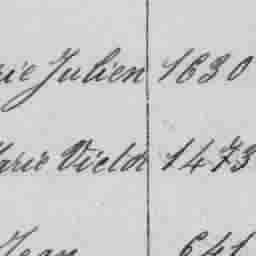 rie Julien 1630
arie Victor 1473
Jean 641